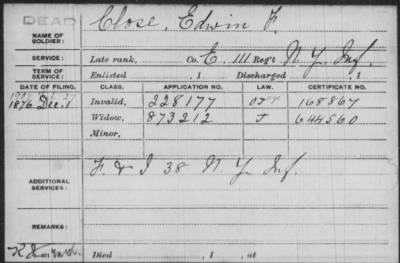 DEAD
NAME OF SOLDIER: Close, Edwin F.
SERVICE: Late rank, Co. E, 111 Reg't N. Y. Inf.
TERM OF SERVICE: Enlisted , 1 Discharged , 1
DATE OF FILING. CLASS. APPLICATION NO. LAW. CERTIFICATE NO.
1876 Dec. 1 Invalid, 228177 168867
Widow, 873212 644560
Minor,
ADDITIONAL SERVICES: F. & I 38 N. Y. Inf.
REMARKS:
Died , 1 , at